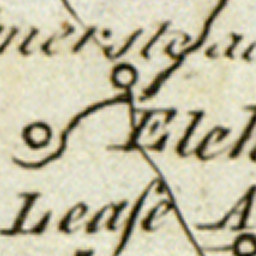 merstea
Elch
Leaſe A